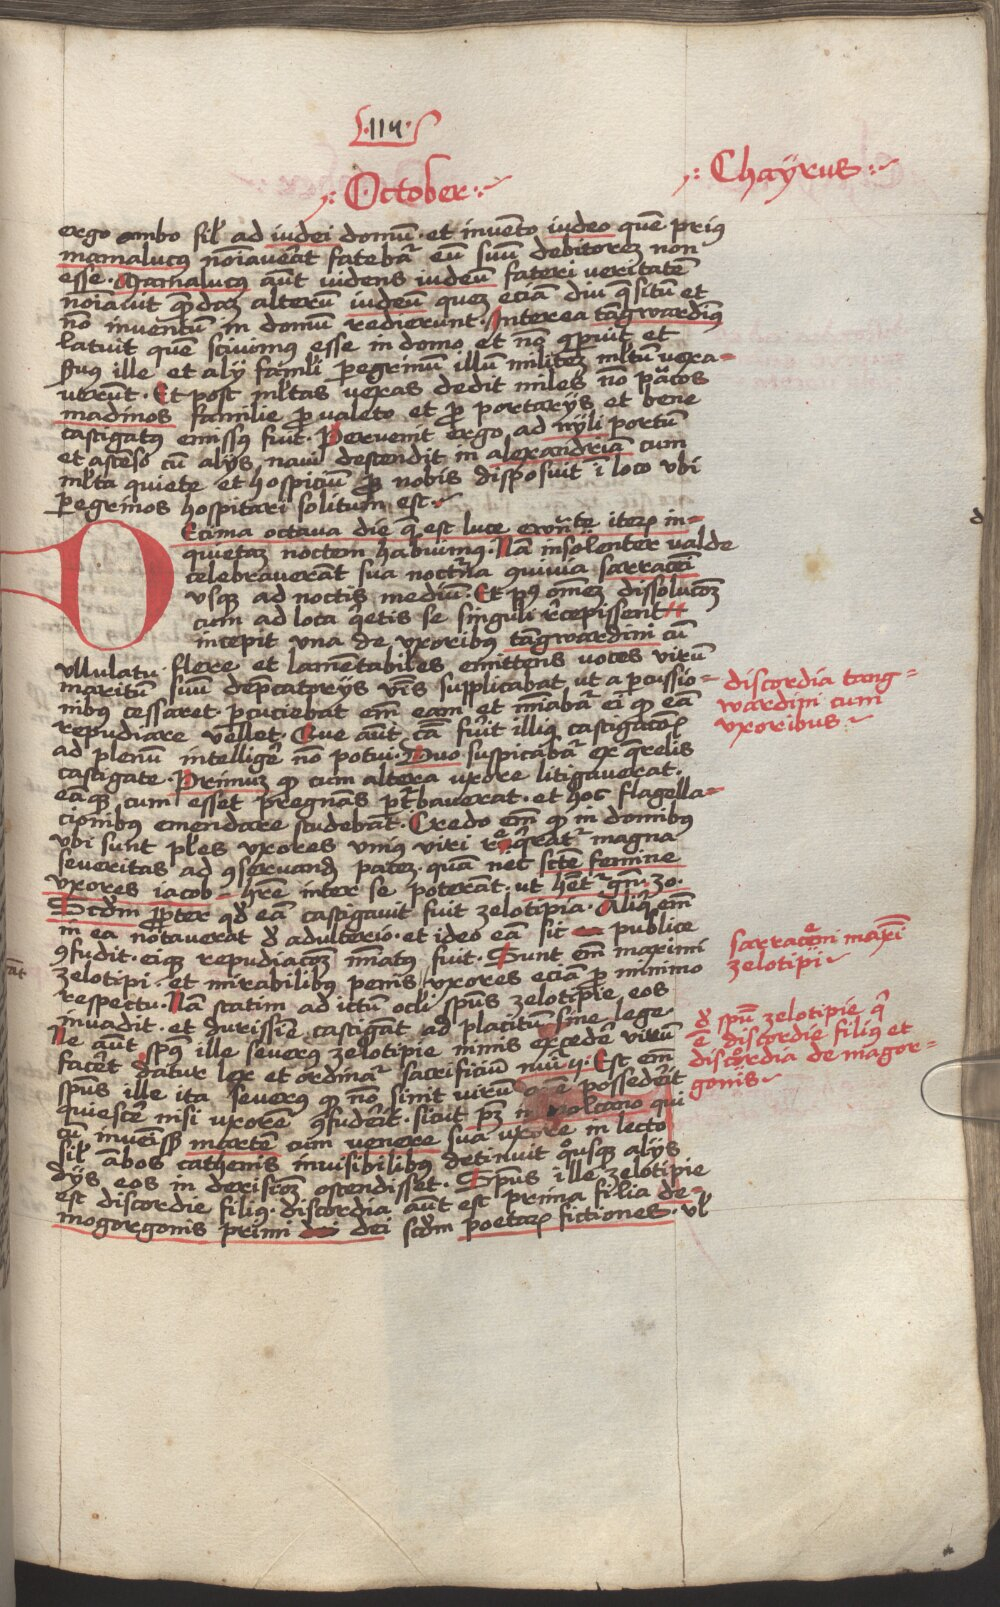 ·114·
October
Chaÿrus
ergo ambo sil̄ ad iudei domū · et invento iudeo quē prius
mamalucus noīaverat fatebat̄ eū suū debitorem non
esse · Mamalucus aūt uidens iudeū fateri veritatē
noīauit quēdam alterū iudeū quem eciā diu q̄situ et
nō inventū in domū redierunt · Interea tāgwardinus
latuit quē scivimus esse in domo et nō et
ille et alij famili peregrinū illū militem ml̄tū vexa=
uerūt · Et post ml̄tas vexas dedit miles nō paucos
madinos familie pro valeto et pro portarijs et bene
castigatus emissus fuit · Pervenit ergo ad nÿli portū
et ascenso cū alijs navi descendit in alexandriā cum
ml̄ta quiete et hospiciū pro nobis disposuit ī loco vbi
peregrinos hospitari solitum est ·
Decima octava die q̄ est luce ewāgēte iterum in=
quietam noctem habuimus · Nā insolenter valde
celebraverāt sua nocturna conuiuia sarraceni
vsque ad noctis mediū · Et post omnem dissolucōem
cum ad loca q̄etis se singuli recepissent
incepit vna de vxoribus tāgwardini cū
vllulatu flere et lamētabiles emittens uoces virū
maritū suū dep̄catorijs v̄bis supplicabat ut a percussio=
nibus cessaret · percuciebat em̄ eam et minabat̄ ei quod eā
repudiare vellet · Que aūt cā fuerit illius castigacōis
ad plenū intelligere nō potui · Duo suspicabar ex querelis
castigate · Primum quod cum altera vxore litigaverat ·
eāque cum esset pregnās perturbaverat · et hoc flagella=
cionibus emendare studebāt · Credo em̄ quod in domibus
vbi sunt plures vxores vnius viri requirat̄ magna
severitas ad conservandam pacem · quā nec scē femine
vxores iacob hr̄e inter se poterāt · ut hēt̄ gn̄ · 30 ·
Scdm propter qd eā castigavit fuit zelotipia · Aliquid em̄
in ea notaverat de adulterio · et ideo eā sic publice
confudit · eique repudiacōem minatus fuit · Sunt em̄ maximi
zelotipi · et mirabilibus penis vxores eciā pro minimo
respectu · Nā statim ad ictū oculi spūs zelotipie eos
invadit · et durissime castigāt ad placitū sine lege
Ne aūt spūs ille severus zelotipie nimis excedere virū
faceret datur lex et ordinat̄ sacrificiū nūi · v · Est em̄
spūs ille ita severus quod nō sinit virū possederit
quiescere nisi vxorē confuderit · sicut patet in volcano qui
cū invenisset martē cum venere sua vxore in lecto
sil̄ ambos cathenis invisibilibus detinuit quousque alijs
dijs eos in derisiōem ostendisset · Spūs ille zelotipie
est discordie filius · discordia aūt est prima filia de=
mogorgonis primi dei scdm poetarum fictiones · ul̄
discordia tang=
wardini cum
vxoribus
sarraceni maxī
zelotipi
de spū zelotipie q̄
ē discordie filius et
discordia de magor=
gonis